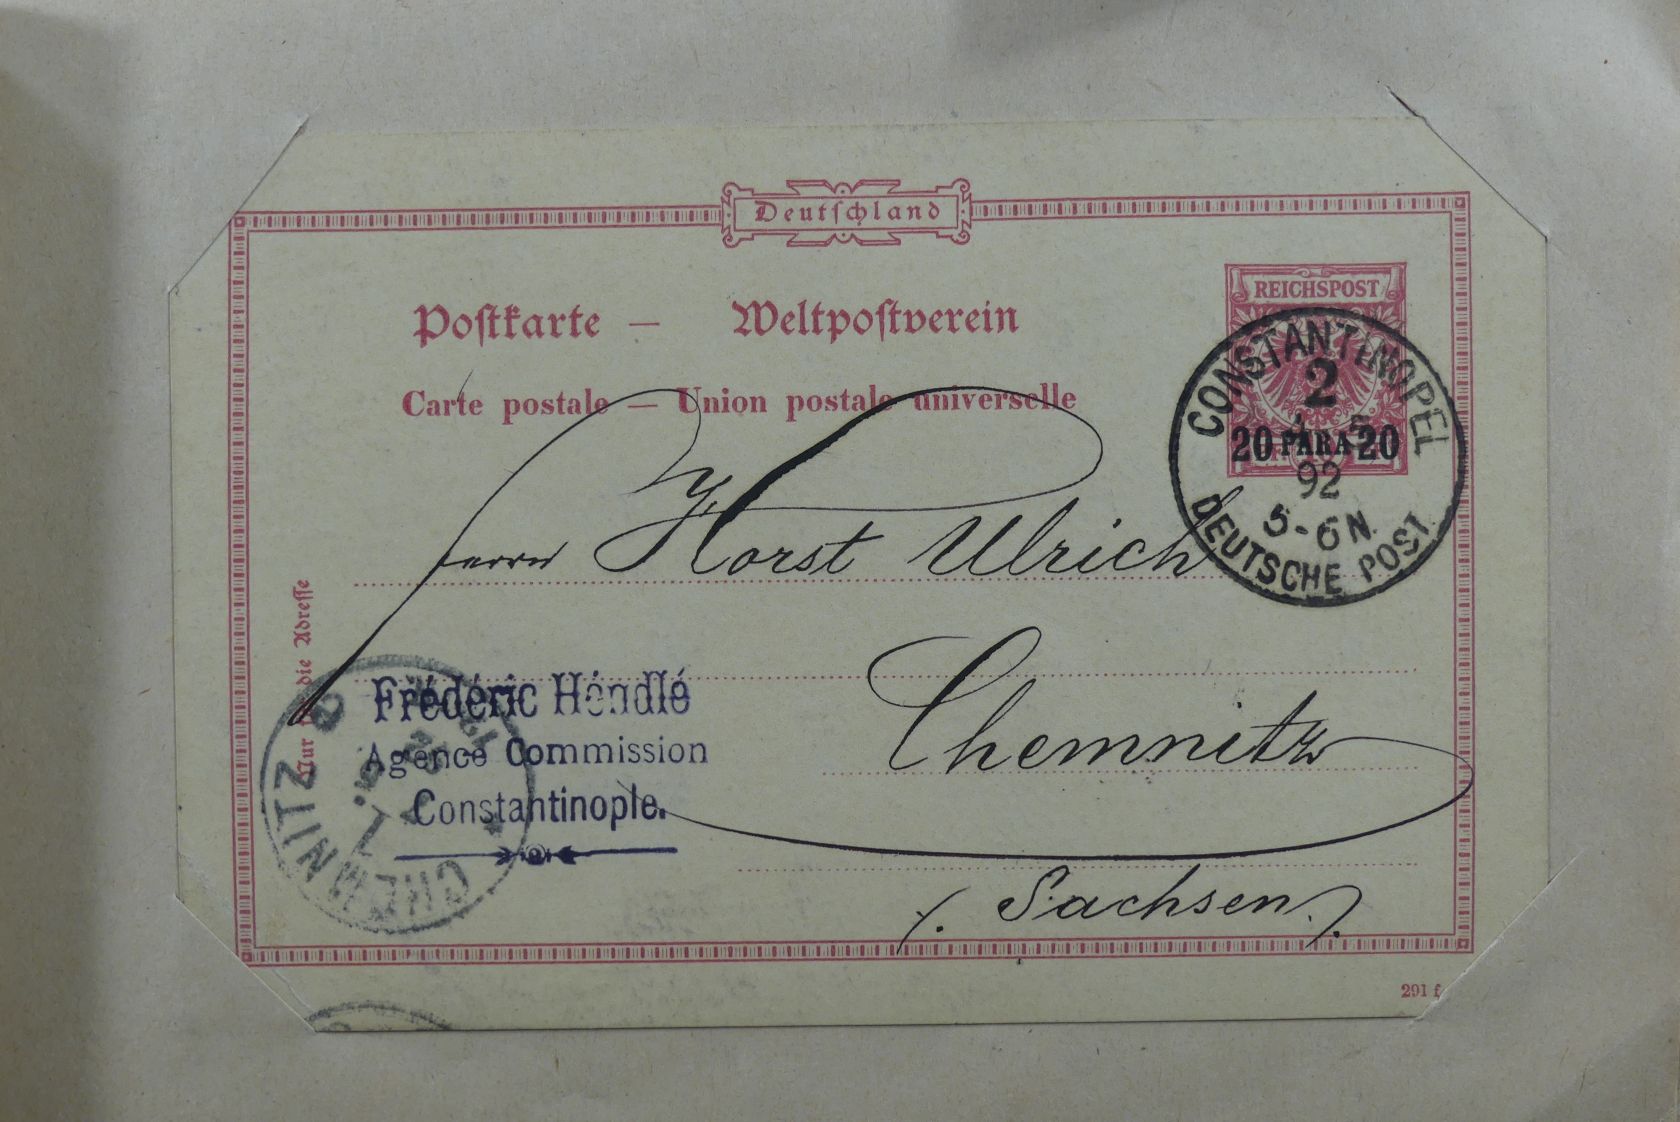 Deutschland
REICHSPOST
Postkarte — Weltpostverein
Carte postale — Union postale universelle
CONSTANTINOPEL
2
20 PARA 20
92
5-6N.
DEUTSCHE POST
Herrn Horst Ulrich
Chemnitz
(Sachsen.)
Nur für die Adresse
Frédéric Hendlé
Agence Commission
Constantinople.
CHEMNITZ
291 f